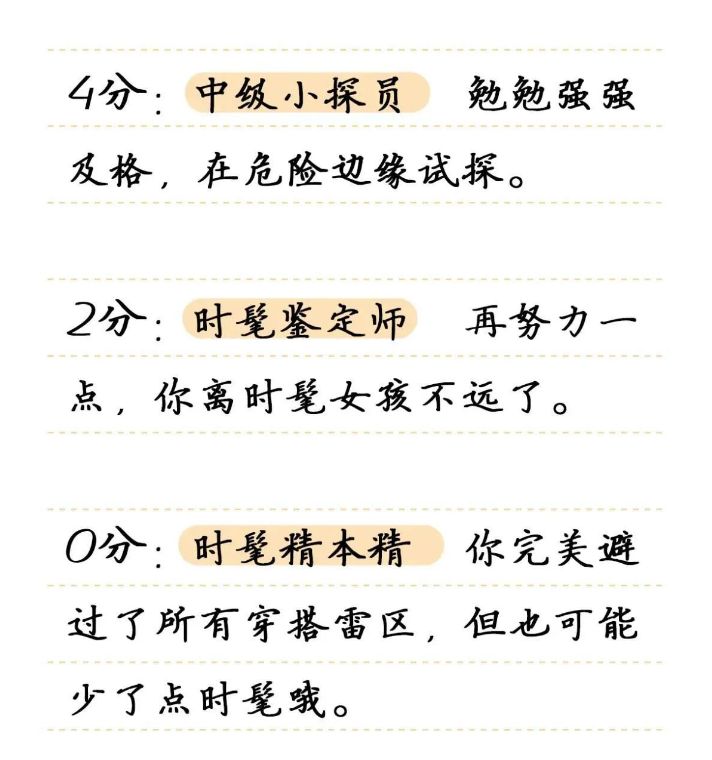 4分：中级小探员 勉勉强强
及格，在危险边缘试探。
2分：时髦鉴定师 再努力一
点，你离时髦女孩不远了。
0分：时髦精本精 你完美避
过了所有穿搭雷区，但也可能
少了点时髦哦。